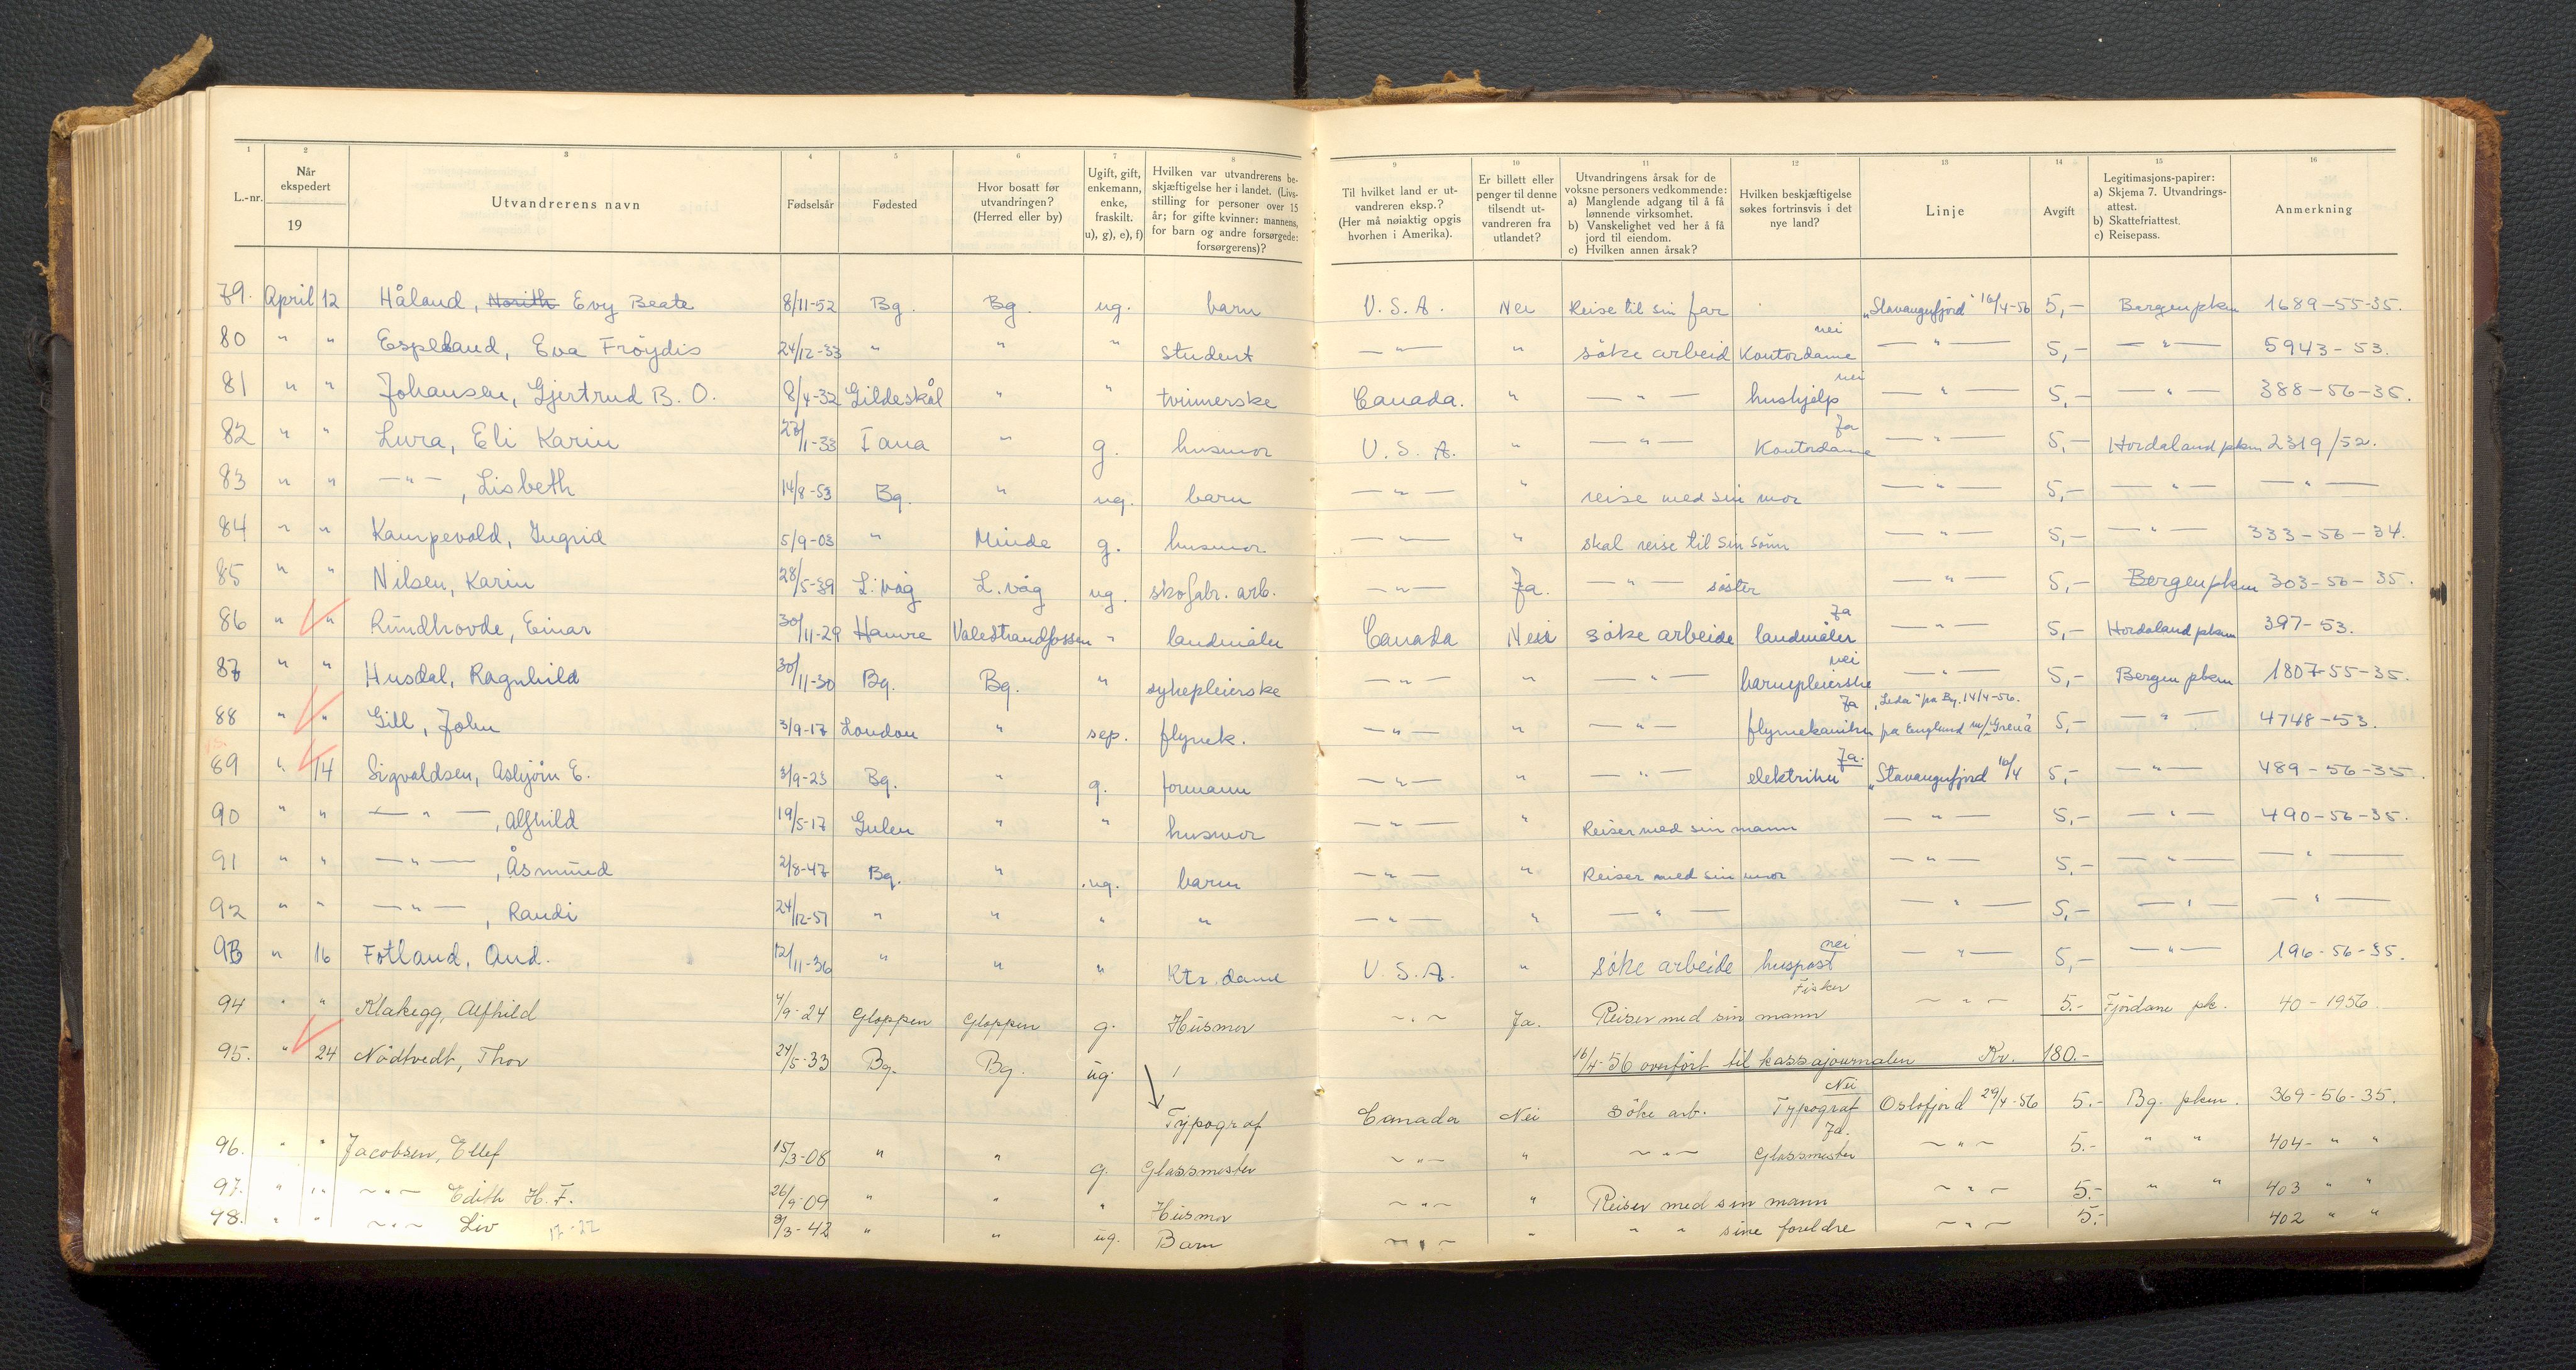 1 2 3 4 5 6 7 8 9 10 11 12 13 14 15 16
L.-nr. | Når ekspedert 19 | Utvandrerens navn | Fødselsår | Fødested | Hvor bosatt før utvandringen? (Herred eller by) | Ugift, gift, enkemann, enke, fraskilt. u), g), e), f) | Hvilken var utvandrerens beskjæftigelse her i landet. (Livsstilling for personer over 15 år; for gifte kvinner: mannens, for barn og andre forsørgede: forsørgerens)? | Til hvilket land er utvandreren eksp.? (Her må nøiaktig opgis hvorhen i Amerika). | Er billett eller penger til denne tilsendt utvandreren fra utlandet? | Utvandringens årsak for de voksne personers vedkommende: a) Manglende adgang til å få lønnende virksomhet. b) Vanskelighet ved her å få jord til eiendom. c) Hvilken annen årsak? | Hvilken beskjæftigelse søkes fortrinsvis i det nye land? | Linje | Avgift | Legitimasjons-papirer: a) Skjema 7. Utvandrings-attest. b) Skattefriattest. c) Reisepass. | Anmerkning
79. April 12 Håland, Evy Beate 8/11-52 Bg. Bg. ug. barn U.S.A. Nei Reise til sin far "Stavangerfjord" 16/4-56 5,- Bergen pkm 1689-55-35.
80 " " Espeland, Eva Fröydis 24/12-33 " " " student -"- " söke arbeid nei Kontordame -"- 5,- -"- 5943-53.
81 " " Johansen, Gjertrud B. O. 8/4-32 Gildeskål " " tvinnerske Canada. " -"- nei hushjelp -"- 5,- -"- 388-56-35.
82 " " Lura, Eli Karin 23/11-33 Tana " g. husmor U.S.A. " -"- Ja Kontordame -"- 5,- Hordaland pkm 2319/52.
83 " " -"-, Lisbeth 14/8-53 Bg. " ug. barn -"- " reise med sin mor -"- 5,- -"- -"-
84 " " Kampevold, Ingrid 5/9-03 " Minde g. husmor -"- " skal reise til sin sönn -"- 5,- -"- 333-56-34.
85 " " Nilsen, Karin 28/5-39 L.våg L.våg ug. skofabr. arb. -"- Ja. -"- söster -"- 5,- Bergen pkm 303-56-35.
86 " " Rundhovde, Einar 30/11-29 Hamre Valestrandfossen " landmåler Canada Nei söke arbeide Ja landmåler -"- 5,- Hordaland pkm 397-53.
87 " " Husdal, Ragnhild 30/11-30 Bg. Bg. " sykepleierske -"- " -"- nei barnepleierske -"- 5,- Bergen pkm 1807-55-35.
88 " " Gill, John 3/9-17 London " sep. flymek. -"- " -"- Ja flymekaniker "Leda" fra Bg. 14/4-56. fra England m/ 5,- -"- 4748-53.
89 " 14 Sigvaldsen, Asbjörn E. 3/9-23 Bg. " g. formann -"- " -"- Ja. elektriker "Stavangerfjord 16/4 5,- -"- 489-56-35.
90 " " -"-, Alfhild 19/5-17 Gulen " " husmor -"- " Reiser med sin mann -"- 5,- -"- 490-56-35.
91 " " -"-, Åsmund 2/8-47 Bg. " ug. barn -"- " Reiser med sin mor -"- 5,- -"- -"-
92 " " -"-, Randi 24/12-51 " " " " -"- " -"- -"- 5,- -"- -"-
93 " 16 Fotland, Aud. 12/11-36 " " " Ktr. dame U.S.A. " söke arbeide nei huspost -"- 5,- -"- 196-56-35.
94 " " Klakegg, Alfhild 4/9-24 Gloppen Gloppen g. Husmor -"- Ja. Reiser med sin mann Fisker -"- 5.- Fjordane pk. 40-1956.
16/4-56 overfört til kassajournalen Kr. 180.-
95. " 24 Nödtvedt, Thor 24/5-33 Bg. Bg. ug. Typograf Canada Nei söke arb. Nei Typograf Oslofjord 29/4-56 5.- Bg. pkm. 369-56-35.
96. " " Jacobsen, Ellef 15/3-08 " " g. Glassmester -"- " -"- Ja. Glassmester -"- 5.- " " 404- " "
97. " " -"- Edith H. F. 26/9-09 " " " Husmor -"- " Reiser med sin mann -"- 5.- " " 403 " "
98. " " -"- Liv 17-22 9/3-42 " " ug. Barn -"- " " " sine foreldre -"- 5.- 402 " "